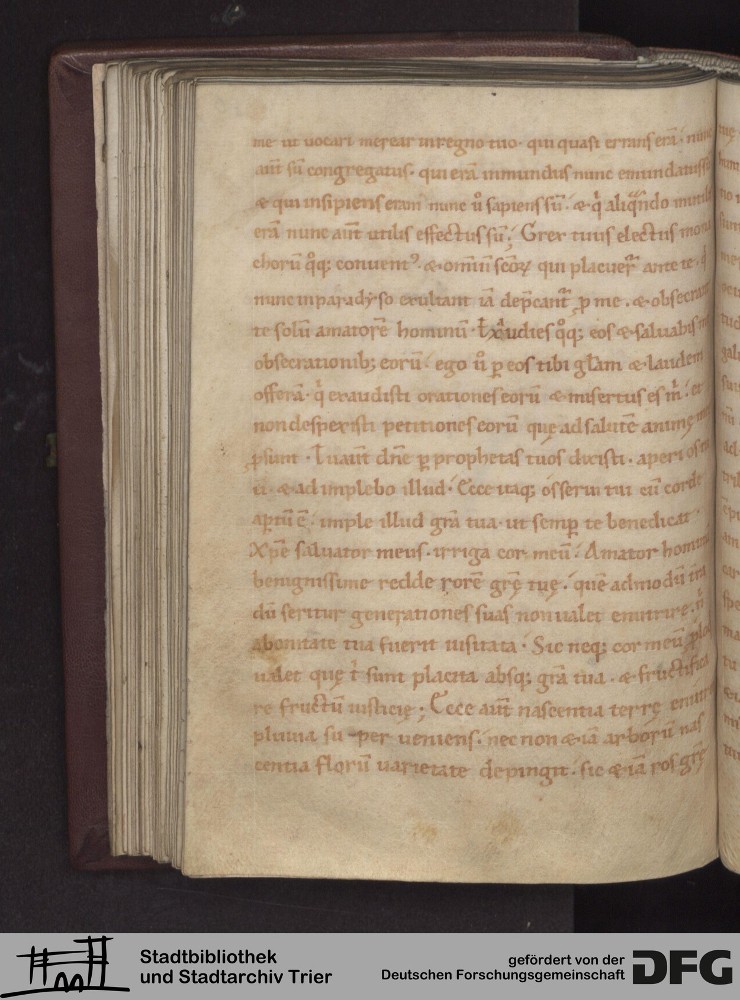 me ut uocari merear in regno tuo · qui quasi errans erā · nunc
aūt sū congregatus · qui erā inmundus nunc emundatus sū
& qui insipiens eram nunc ů sapiens sū · & q̇ aliq̃ndo inutilis
erā nunc aūt utilis effectus sū ; Grex tuus electus mona
chorū q̊q; conuent᾽ · & omniū scōꝝ qui placuer̄ ante te ·
nunc in paradyso exultant iā dep̄cant̄ ꝓ me · & obsecrant
te solū amatorē hominū · Exaudies q̊q; eos & saluabis me
obsecrationib; eorū · ego ů ꝑ eos tibi gl̄am & laudem
offerā · q̇ exaudisti orationes eorū & misertus es m̄ · et
non despexisti petitiones eorū que ad salutē animę meę
ꝓsunt · Tu aūt dn̄e ꝑ prophetas tuos dixisti · aperi os tu
ū · & ad implebo illud · Ecce itaq; os serui tui cū corde
aꝑtū ē · imple illud gr̄a tua · ut semꝑ te benedicat ·
Xp̄e saluator meus · irriga cor meū · Amator hominū
benignissime redde rorē gr̄ę tuę · quē admodū t̄ra
dū seritur generationes suas non ualet enutrire · n̄
a bonitate tua fuerit uisitata · Sic neq; cor meū ꝓloq
ualet quę t̄ sunt placita absq; gr̄a tua · & fructifica
re fructū iusticię ; Ecce aūt nascentia terrę enutrit
pluuia su per ueniens · nec non & iā arborū nas
centia florū uarietate depingit · sic & iā ros gr̄ę
Stadtbibliothek
und Stadtarchiv Trier
gefördert von der
Deutschen Forschungsgemeinschaft
DFG